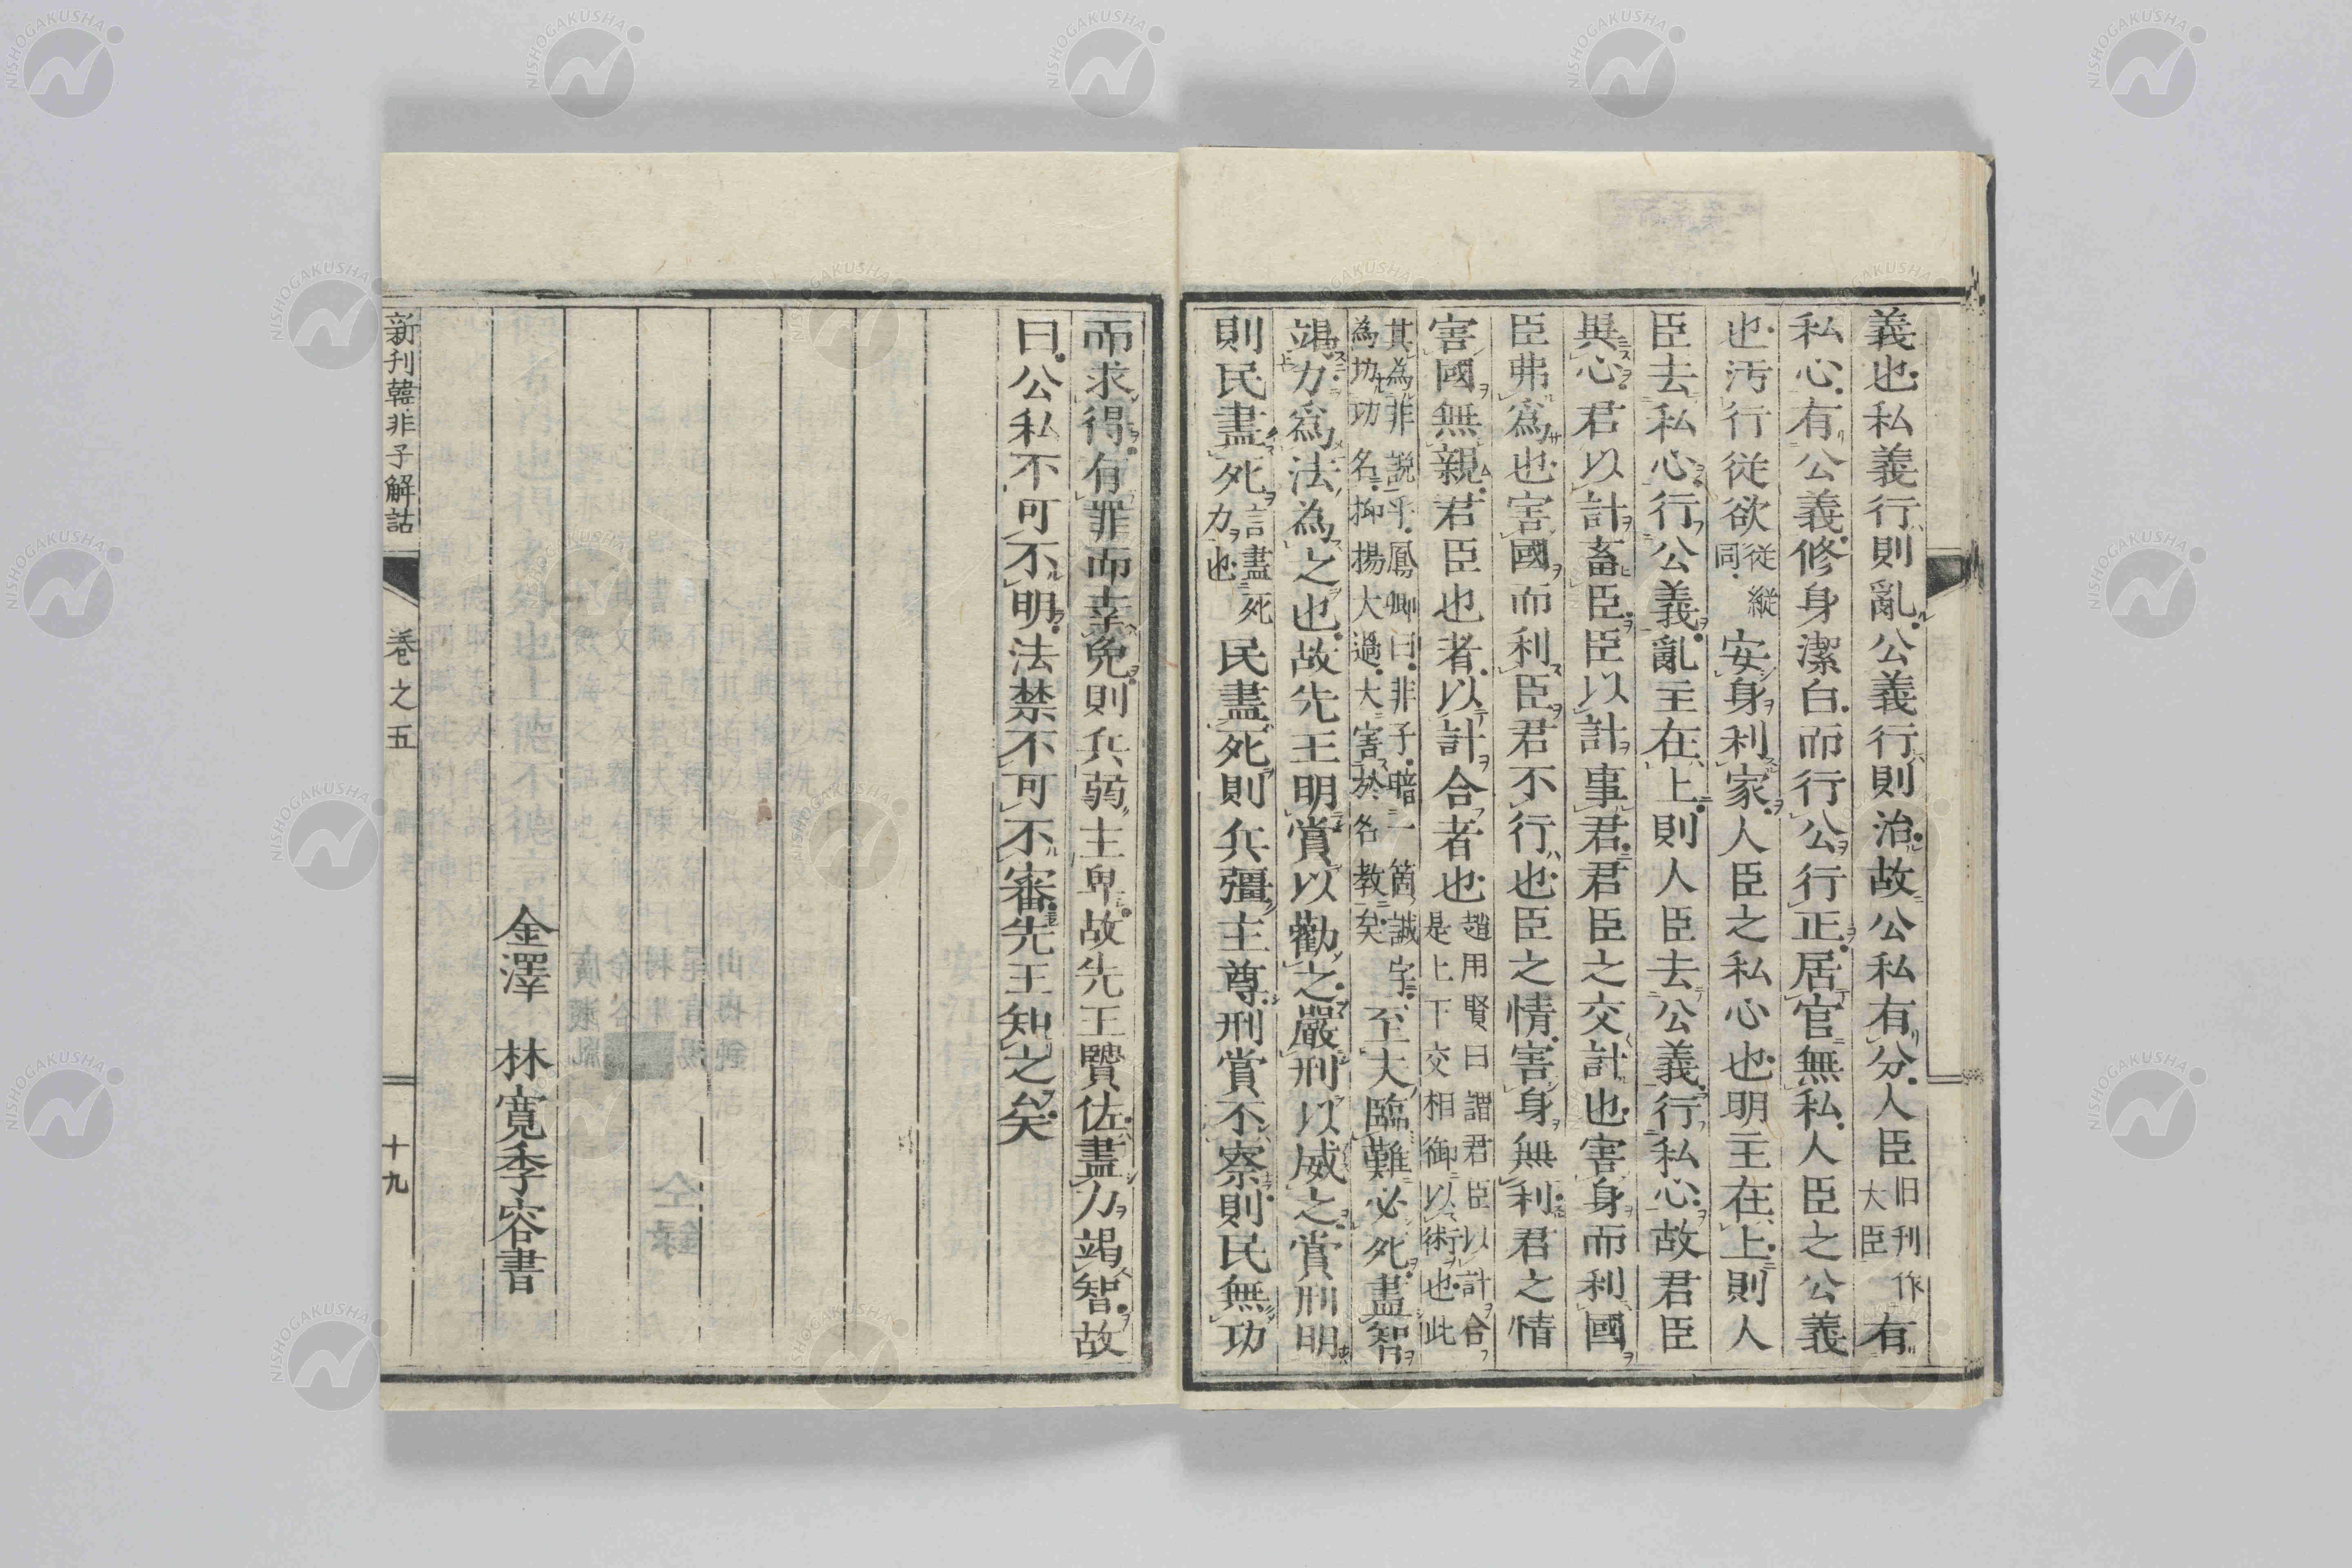 義也私義行則亂公義行則治故公私有分人臣旧刊作大臣有
私心有公義修身潔白而行公行正居官無私人臣之公義
也汚行從欲從縱同安身利家人臣之私心也明主在上則人
臣去私心行公義亂主在上則人臣去公義行私心故君臣
異心君以計畜臣臣以計事君君臣之交計也害身而利國
臣弗爲也害國而利臣君不行也臣之情害身無利君之情
害國無親君臣也者以計合者也趙用賢曰謂君臣以計合是上下交相御以術也此
其為非説乎鳳卿曰非子暗一箇誠字為功功名抑揚大過大害於名教矣至夫臨難必死盡智
竭力爲法為之也故先王明賞以勸之嚴刑以威之賞刑明
則民盡死言盡死力也民盡死則兵彊主尊刑賞不察則民無功
而求得有罪而幸免則兵弱主卑故先王賢佐盡力竭智故
曰公私不可不明法禁不可不審先王知之矣
金澤 林寬季容書
新刊韓非子解詁 卷之五 十九
NISHOGAKUSHA